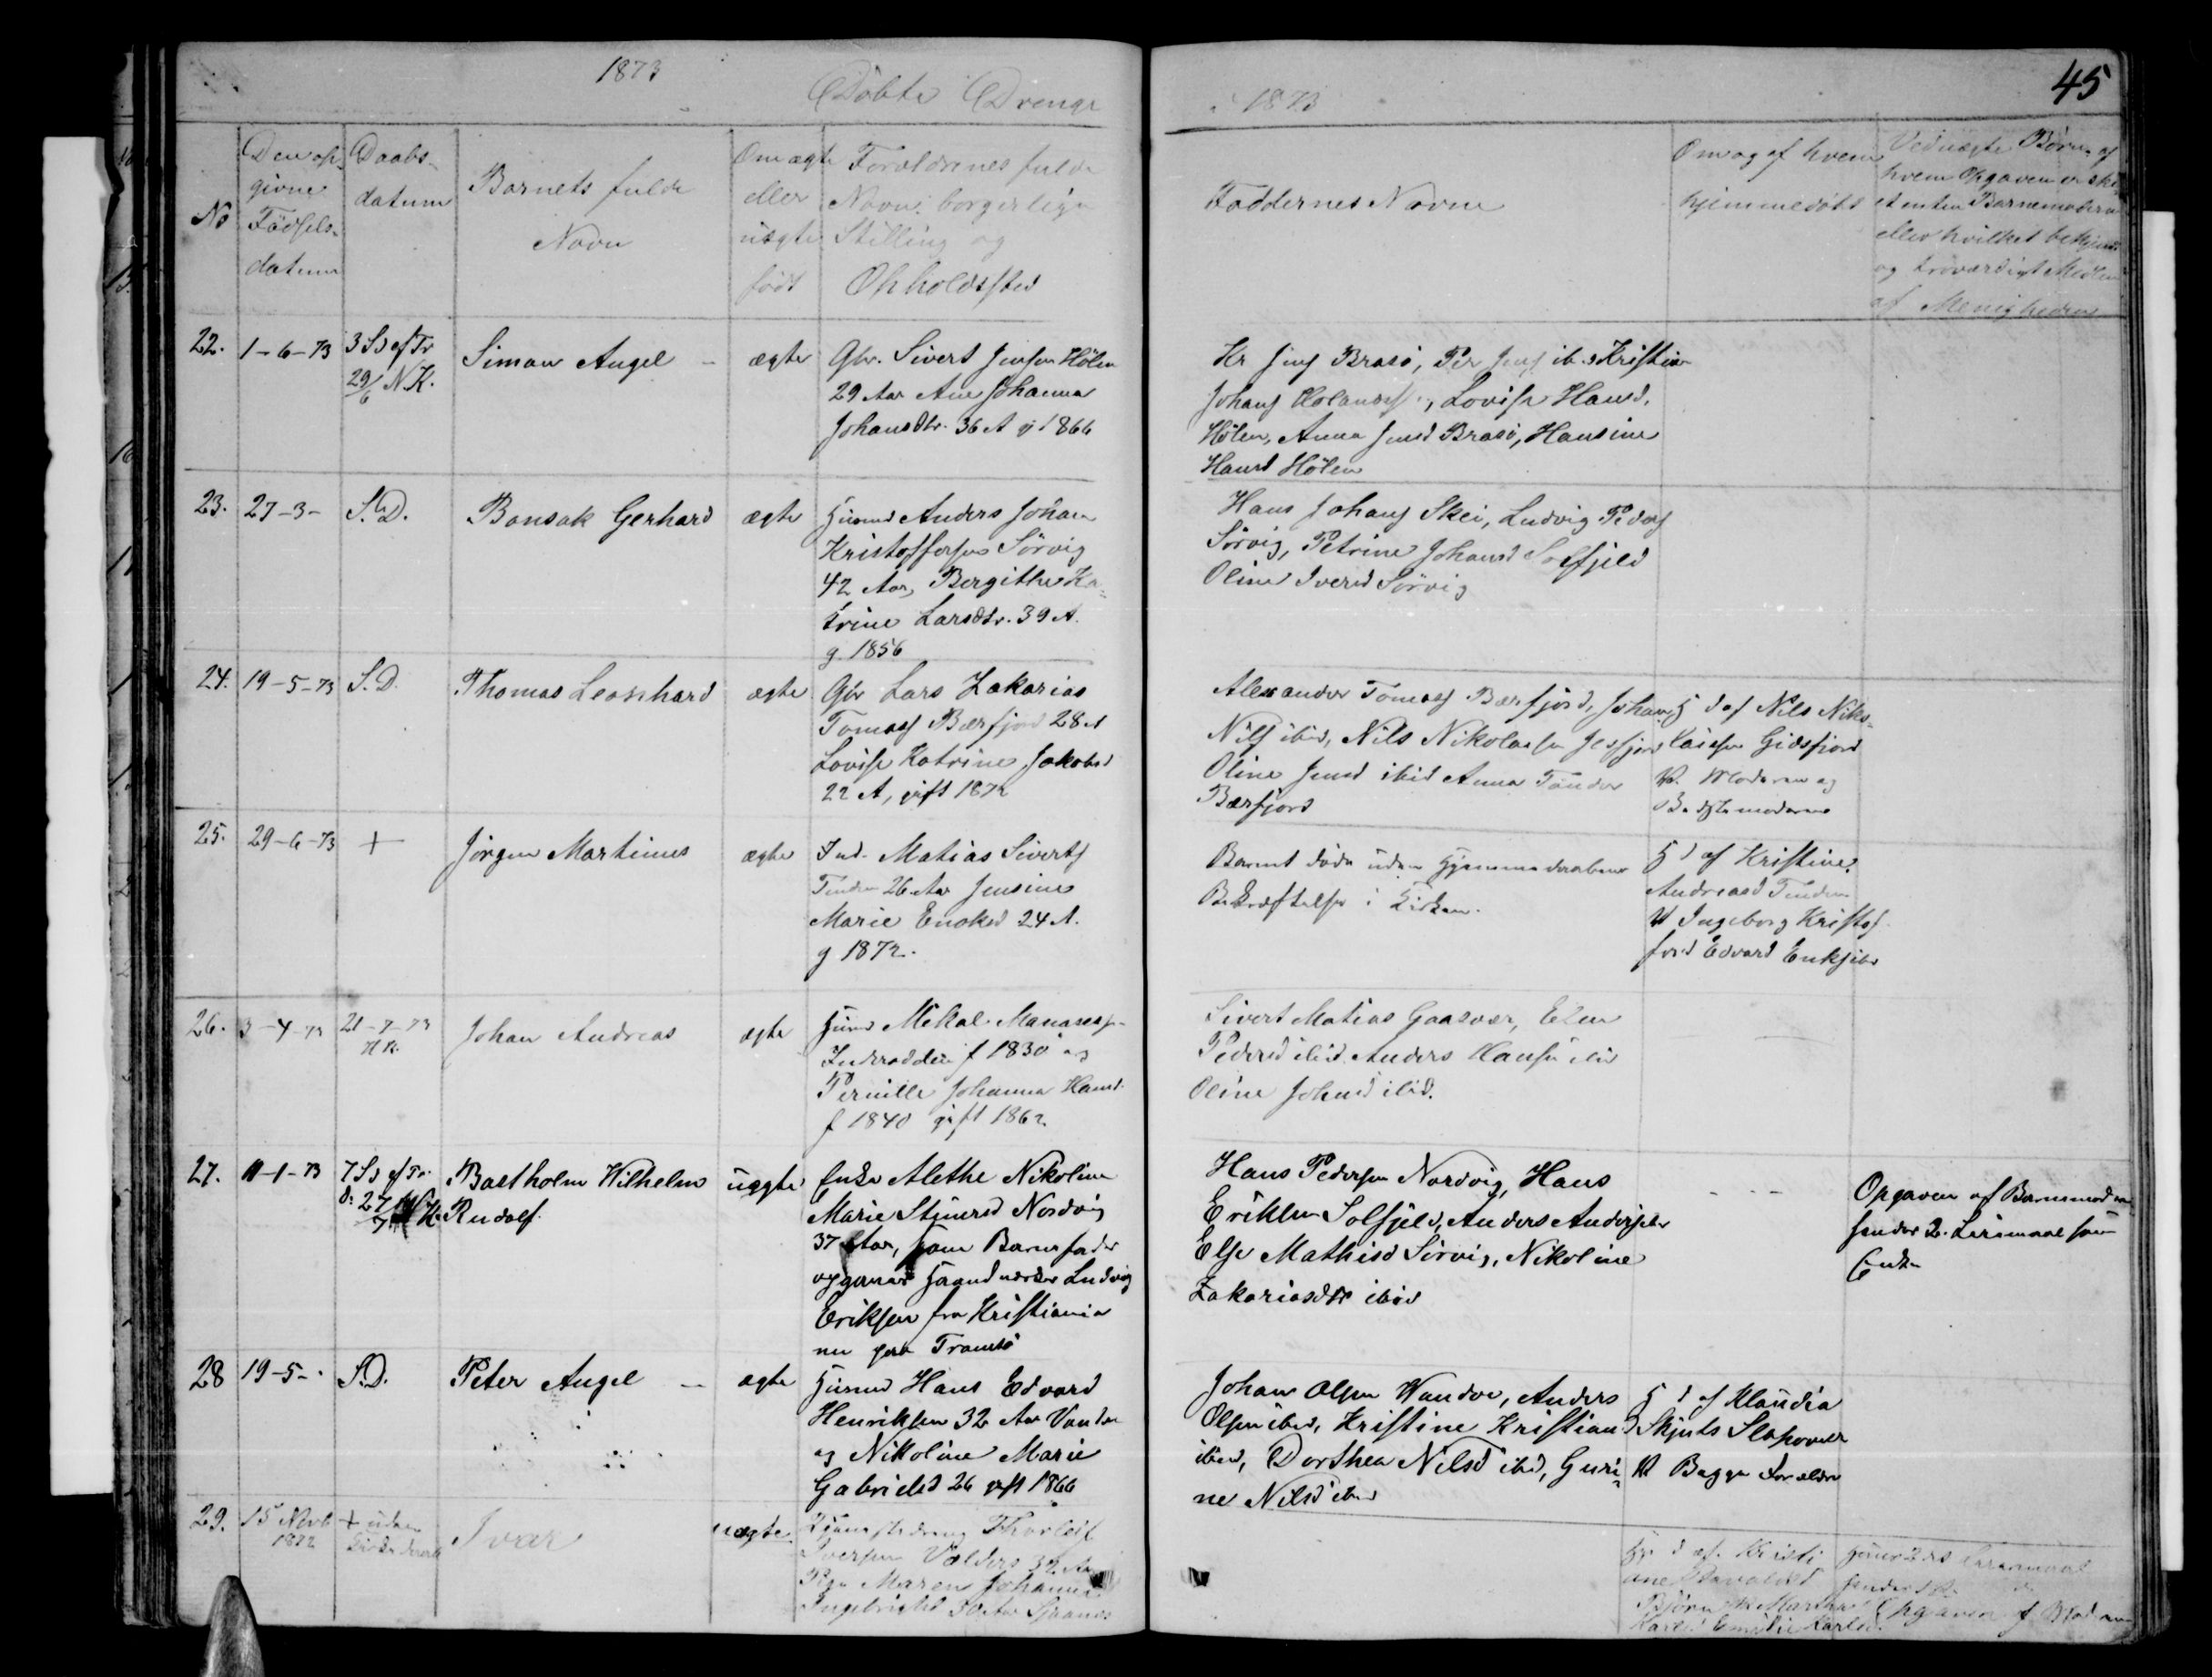 1873
Döbte Drenge
1873
45
No
Den op-
givne
Födsels-
datum
Daabs-
datum
Barnets fulde
Navn
Om ægte
eller
uægte
födt
Forældrenes fulde
Navn, borgerlige
Stilling og
Opholdssted
Faddernes Navne
Om og af hvem
hjemmedöbt
Ved uægte Börn, af
hvem Opgaven er
et enten Barnemoderen
eller hvilket
og troværdigt Medlem
af Menigheden
22. 1-6-73 3 Sd ef Tr Simon Angel - ægte Gbr. Sivert Jensen Hölen
29/6 N.K. 29 Aar Ane Johanna
Johansdtr. 36 A g 1866
Kr Jens Brasö, Per Jens ib. Kristian
Johans Lovise Hansd.
Hölen, Anna Jensd Brasö, Hansine
Hansd Hölen
23. 27-3- S.D. Bonsak Gerhard ægte Husmd Anders Johan
Kristoffersen Sörvig
42 Aar, Bergithe Ka-
trine Larsdtr. 39 A.
g. 1856
Hans Johans Skei, Ludvig Peders
Sörvig, Petrine Johansd Solfjeld
Oline Iversd Sörvig
24. 19-5-73 S.D. Thomas Leonhard ægte Gbr Lars Zakarias
Tomass Bærfjord 28 A
Lovise Katrine Jakobsd
22 A, gift 1872
Alexander Tomass Bærfjord, Johan
Nils ibid, Nils Nikolaisen
Oline Jensd ibid Anna Tönder
Bærfjord
H d af Nils Niko-
laisen Gidsfjord
V. Moderen og
Bedstemoderen
25. 29-6-73 + Jörgen Martinus ægte Ind. Matias Siverts
26 Aar Jensine
Marie Enoksd 24 A.
g 1872.
Barnet döde uden Hjemmedaabens
Bekræftelse i Kirken.
H d af Kristine
Andreasd
V Ingeborg Kristof
fersd Edvard
26. 3-4-73 21-7-73 Johan Andreas ægte Husmd Mikal Manasses-
H K. f 1830 og
Pernille Johanna Hansd.
f 1840 gift 1862
Sivert Matias Gaasvær, Elen
Pedersd ibid. Anders Hansen ibid
Oline Johnsd ibid.
27. 11-1-73 7 Sd ef Tr. Bastholm Wilhelm uægte Enke Alethe Nikoline
o: 27/7 H K. Rudolf.
Marie Nordvig
37 Aar, som Barnefader
opgives Haandværker Ludvig
Eriksen fra Kristiania
nu paa Tromsö
Hans Pedersen Nordvig, Hans
Eriksen Solfjeld, Anders Andersen
Else Mathisd Sörvig, Nikoline
Zakariasdtr ibid
- - -
Opgaven af Barnemoderen
hendes 2. Leiermaal som
Enke
28 19-5- S.D. Peter Angel - ægte Husmd Hans Edvard
Henriksen 32 Aar Vandve
og Nikoline Marie
Gabrielsd 26 gift 1866
Johan Olsen Wandve, Anders
Olsen ibid, Kristine Kristiansd
ibid, Dorthea Nilsd ibid, Guri-
ne Nilsd ibid
H d af Klaudia
V Begge Forældre
29. 15 Novb + uden Ivar uægte Thorleif
1872
Iversen Valders 32 Aar
Pige Maren Johanna
Ingebrigtsd 30 Aar
Hj d af Kristi
ane
Björn V Martha
Karlsd.
Hans 2det Leiermaal
hendes 1ste
Opgaven af Moderen